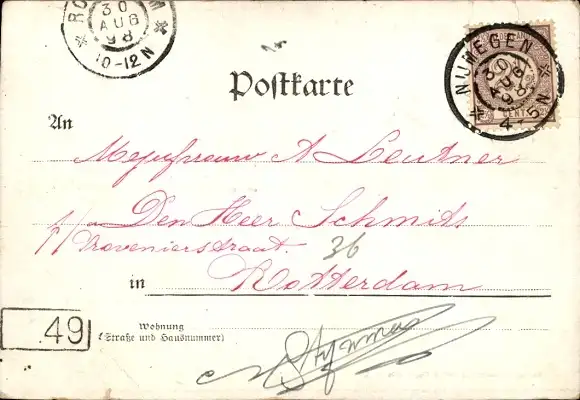 30
AUG
98
10-12N
NIJMEGEN
30
AUG
98
4-5N
CENT
Postkarte
An
Mejuffrouw A Leutner
p/a Den Heer Schmits
Proveniersstraat. 36
in Rotterdam
49
Wohnung
(Straße und Hausnummer)